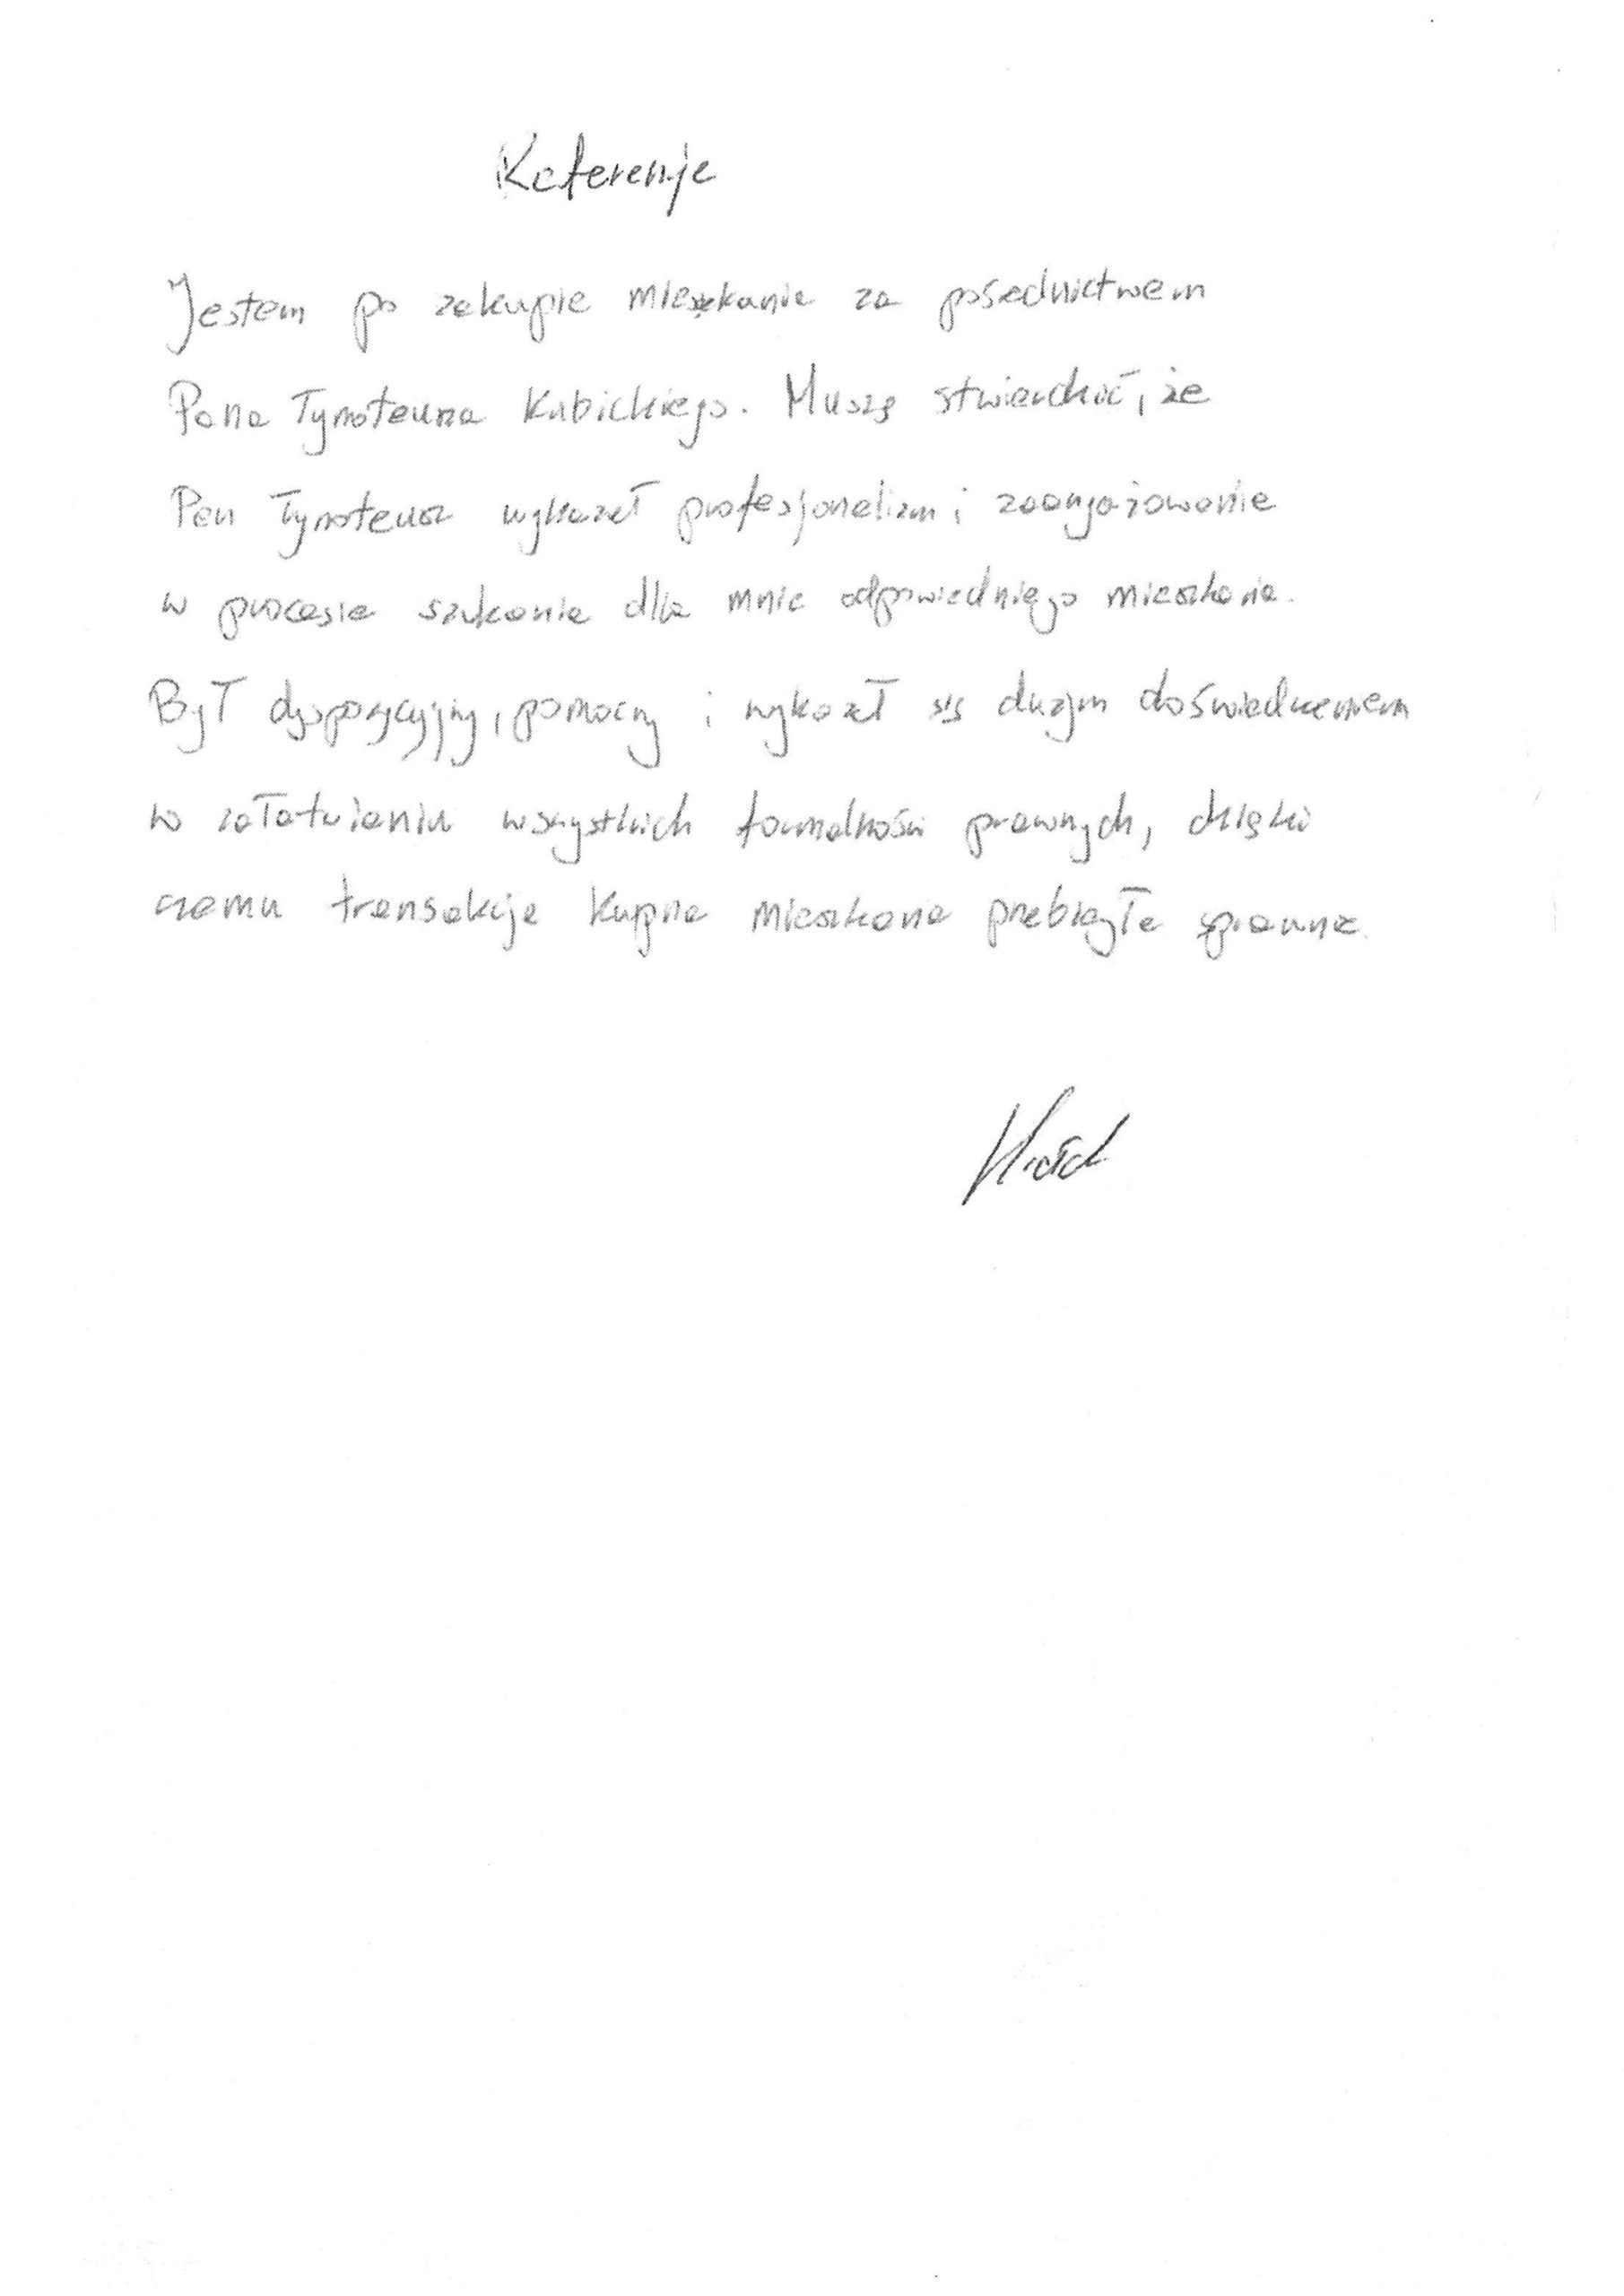 Referencje
Jestem po zakupie mieszkania za pośednictwem
Pana Tymoteusza Kubickiego. Muszę stwierdzić, że
Pan Tymoteusz wykazał profesjonalizm i zaangażowanie
w procesie szukania dla mnie odpowiedniego mieszkania.
Był dyspozycyjny, pomocny i wykazał się dużym doświadczeniem
w załatwieniu wszystkich formalności prawnych, dzięki
czemu transakcja kupna mieszkania przebiegła sprawnie.